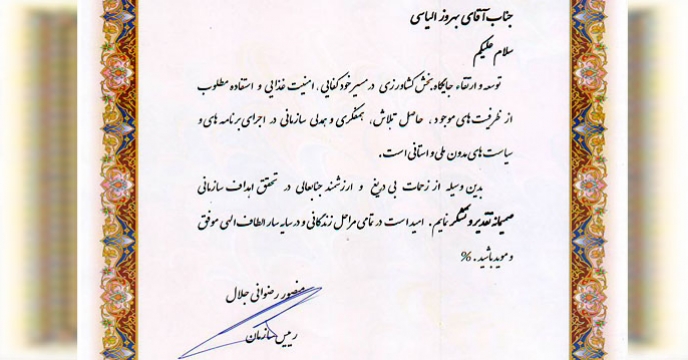 جناب آقای بهروز الیاسی
سلام علیکم
توسعه و ارتقاء جایگاه بخش کشاورزی در مسیر خودکفایی، امنیت غذایی و استفاده مطلوب
از ظرفیت های موجود، حاصل تلاش، همفکری و همدلی سازمانی در اجرای برنامه های و
سیاست های مدون ملی و استانی است.
بدین وسیله از زحمات بی دریغ و ارزشمند جنابعالی در تحقق اهداف سازمانی
صمیمانه تقدیر و تشکر نمایم. امید است در تمامی مراحل زندگانی و در سایه سار الطاف الهی موفق
و موید باشید. %
منصور رضوانی جلال
رییس سازمان